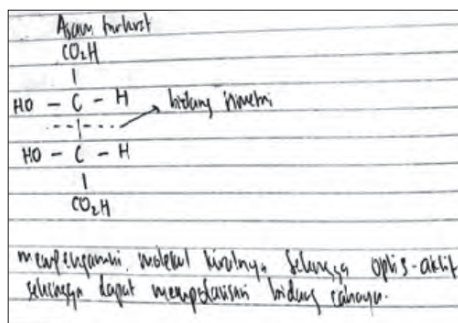 Asam tartarat
CO₂H
HO – C – H
bidang simetri
HO – C – H
CO₂H
mempengaruhi molekul kiralnya sehingga optis-aktif
sehingga dapat mempolarisasi bidang cahaya.